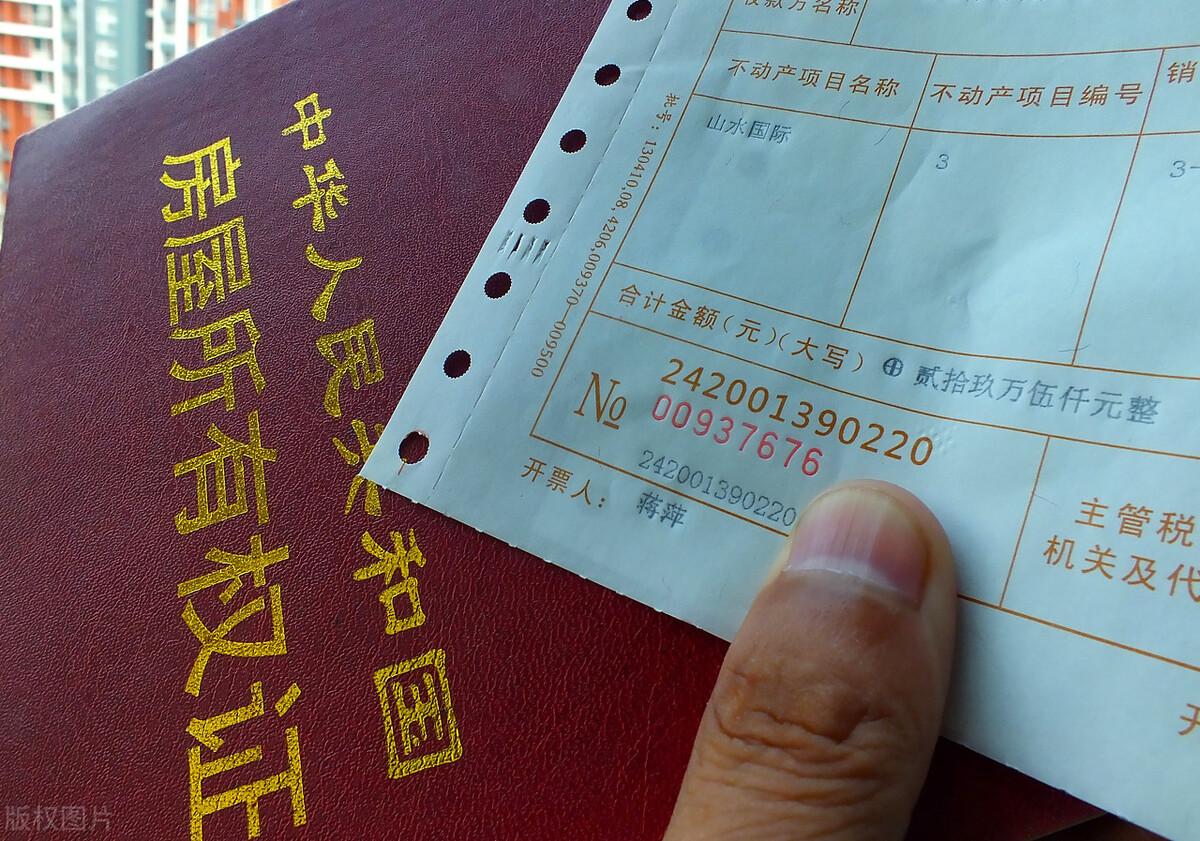 中华人民共和国
房屋所有权证
收款方名称
不动产项目名称
不动产项目编号
销
山水国际
3
3-
130410.08.4206.009370—009500
合计金额(元)(大写)
⊕ 贰拾玖万伍仟元整
242001390220
№ 00937676
242001390220
开票人: 蒋萍
主管税
机关及代
开
版权图片